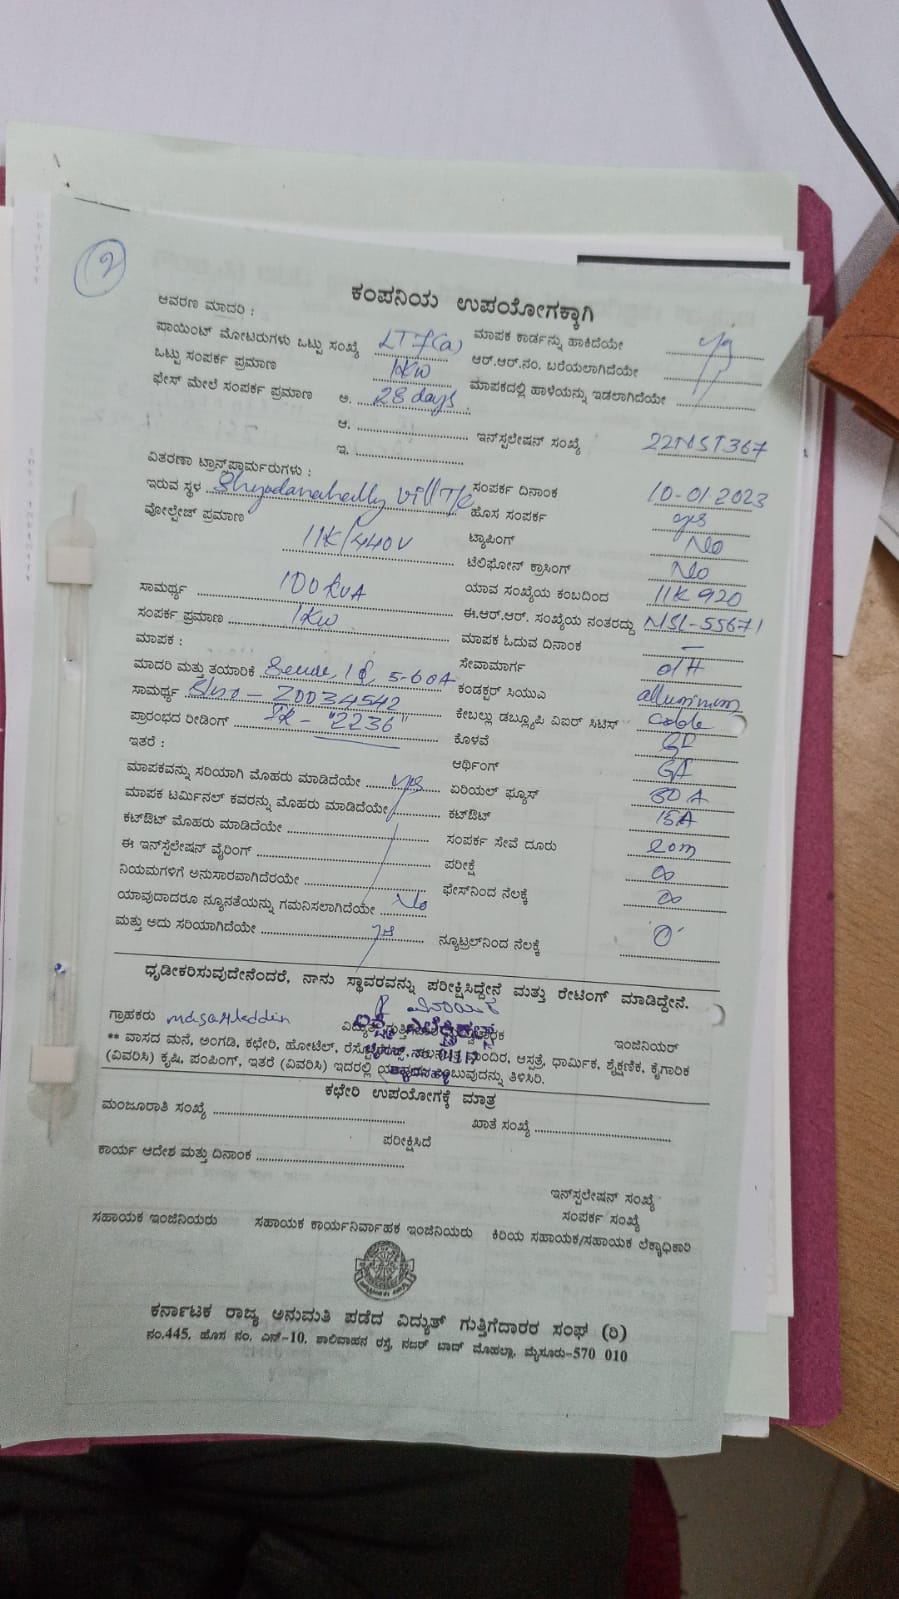 2
ಕಂಪನಿಯ ಉಪಯೋಗಕ್ಕಾಗಿ
ಆವರಣ ಮಾದರಿ :
ಪಾಯಿಂಟ್ ಮೋಟರುಗಳು ಒಟ್ಟು ಸಂಖ್ಯೆ LT7(a) ಮಾಪಕ ಕಾರ್ಡನ್ನು ಹಾಕಿದೆಯೇ yes
ಒಟ್ಟು ಸಂಪರ್ಕ ಪ್ರಮಾಣ 1KW ಆರ್.ಆರ್.ನಂ. ಬರೆಯಲಾಗಿದೆಯೇ
ಫೇಸ್ ಮೇಲೆ ಸಂಪರ್ಕ ಪ್ರಮಾಣ ಅ. 28 days ಮಾಪಕದಲ್ಲಿ ಹಾಳೆಯನ್ನು ಇಡಲಾಗಿದೆಯೇ
ಆ. ಇನ್‌ಸ್ಟಲೇಷನ್ ಸಂಖ್ಯೆ 22NST367
ಇ.
ವಿತರಣಾ ಟ್ರಾನ್ಸ್‌ಫಾರ್ಮರುಗಳು :
ಇರುವ ಸ್ಥಳ Vill T/c ಸಂಪರ್ಕ ದಿನಾಂಕ 10-01-2023
ವೋಲ್ಟೇಜ್ ಪ್ರಮಾಣ 11K/440V ಹೊಸ ಸಂಪರ್ಕ yes
ಟ್ಯಾಪಿಂಗ್ No
ಟೆಲಿಫೋನ್ ಕ್ರಾಸಿಂಗ್ No
ಸಾಮರ್ಥ್ಯ 100 kVA ಯಾವ ಸಂಖ್ಯೆಯ ಕಂಬದಿಂದ 11K920
ಸಂಪರ್ಕ ಪ್ರಮಾಣ 1KW ಈ.ಆರ್.ಆರ್. ಸಂಖ್ಯೆಯ ನಂತರದ್ದು NSL-55671
ಮಾಪಕ : ಮಾಪಕ ಓದುವ ದಿನಾಂಕ –
ಮಾದರಿ ಮತ್ತು ತಯಾರಿಕೆ 5-60A ಸೇವಾಮಾರ್ಗ O/H
ಸಾಮರ್ಥ್ಯ Slno – Z0034542 ಕಂಡಕ್ಟರ್ ಸಿಯುಎ alluminum
ಪ್ರಾರಂಭದ ರೀಡಿಂಗ್ IR – "2236" ಕೇಬಲ್ಲು ಡಬ್ಲ್ಯೂಪಿ ವಿಐರ್ ಸಿಟಿಸ್ cable
ಇತರೆ : ಕೊಳವೆ GI
ಆರ್ಥಿಂಗ್ GI
ಮಾಪಕವನ್ನು ಸರಿಯಾಗಿ ಮೊಹರು ಮಾಡಿದೆಯೇ yes ಏರಿಯಲ್ ಫ್ಯೂಸ್ 30 A
ಮಾಪಕ ಟರ್ಮಿನಲ್ ಕವರನ್ನು ಮೊಹರು ಮಾಡಿದೆಯೇ ಕಟ್‌ಔಟ್ 15A
ಕಟ್‌ಔಟ್ ಮೊಹರು ಮಾಡಿದೆಯೇ ಸಂಪರ್ಕ ಸೇವೆ ದೂರು 20m
ಈ ಇನ್‌ಸ್ಟೆಲೇಷನ್ ವೈರಿಂಗ್ ಪರೀಕ್ಷೆ ∞
ನಿಯಮಗಳಿಗೆ ಅನುಸಾರವಾಗಿದೆರಯೇ ಫೇಸ್‌ನಿಂದ ನೆಲಕ್ಕೆ ∞
ಯಾವುದಾದರೂ ನ್ಯೂನತೆಯನ್ನು ಗಮನಿಸಲಾಗಿದೆಯೇ No
ಮತ್ತು ಅದು ಸರಿಯಾಗಿದೆಯೇ yes ನ್ಯೂಟ್ರಲ್‌ನಿಂದ ನೆಲಕ್ಕೆ 'O'
ಧೃಡೀಕರಿಸುವುದೇನೆಂದರೆ, ನಾನು ಸ್ಥಾವರವನ್ನು ಪರೀಕ್ಷಿಸಿದ್ದೇನೆ ಮತ್ತು ರೇಟಿಂಗ್ ಮಾಡಿದ್ದೇನೆ.
ಗ್ರಾಹಕರು ವಿದ್ಯುತ್ ಇಂಜಿನಿಯರ್
** ವಾಸದ ಮನೆ, ಅಂಗಡಿ, ಕಛೇರಿ, ಹೋಟೆಲ್, ಮಂದಿರ, ಆಸ್ಪತ್ರೆ, ಧಾರ್ಮಿಕ, ಶೈಕ್ಷಣಿಕ, ಕೈಗಾರಿಕ
(ವಿವರಿಸಿ) ಕೃಷಿ, ಪಂಪಿಂಗ್, ಇತರೆ (ವಿವರಿಸಿ) ಇದರಲ್ಲಿ ಎಂಬುವುದನ್ನು ತಿಳಿಸಿರಿ.
ಕಛೇರಿ ಉಪಯೋಗಕ್ಕೆ ಮಾತ್ರ
ಮಂಜೂರಾತಿ ಸಂಖ್ಯೆ ಖಾತೆ ಸಂಖ್ಯೆ
ಪರೀಕ್ಷಿಸಿದೆ
ಕಾರ್ಯ ಆದೇಶ ಮತ್ತು ದಿನಾಂಕ
ಇನ್‌ಸ್ಟಲೇಷನ್ ಸಂಖ್ಯೆ
ಸಂಪರ್ಕ ಸಂಖ್ಯೆ
ಸಹಾಯಕ ಇಂಜಿನಿಯರು ಸಹಾಯಕ ಕಾರ್ಯನಿರ್ವಾಹಕ ಇಂಜಿನಿಯರು ಕಿರಿಯ ಸಹಾಯಕ/ಸಹಾಯಕ ಲೆಕ್ಕಾಧಿಕಾರಿ
ಕರ್ನಾಟಕ ರಾಜ್ಯ ಅನುಮತಿ ಪಡೆದ ವಿದ್ಯುತ್ ಗುತ್ತಿಗೆದಾರರ ಸಂಘ (ರಿ)
ನಂ.445, ಹೊಸ ನಂ. ಎನ್-10, ಶಾಲಿವಾಹನ ರಸ್ತೆ, ನಜರ್ ಬಾದ್ ಮೊಹಲ್ಲಾ, ಮೈಸೂರು-570 010